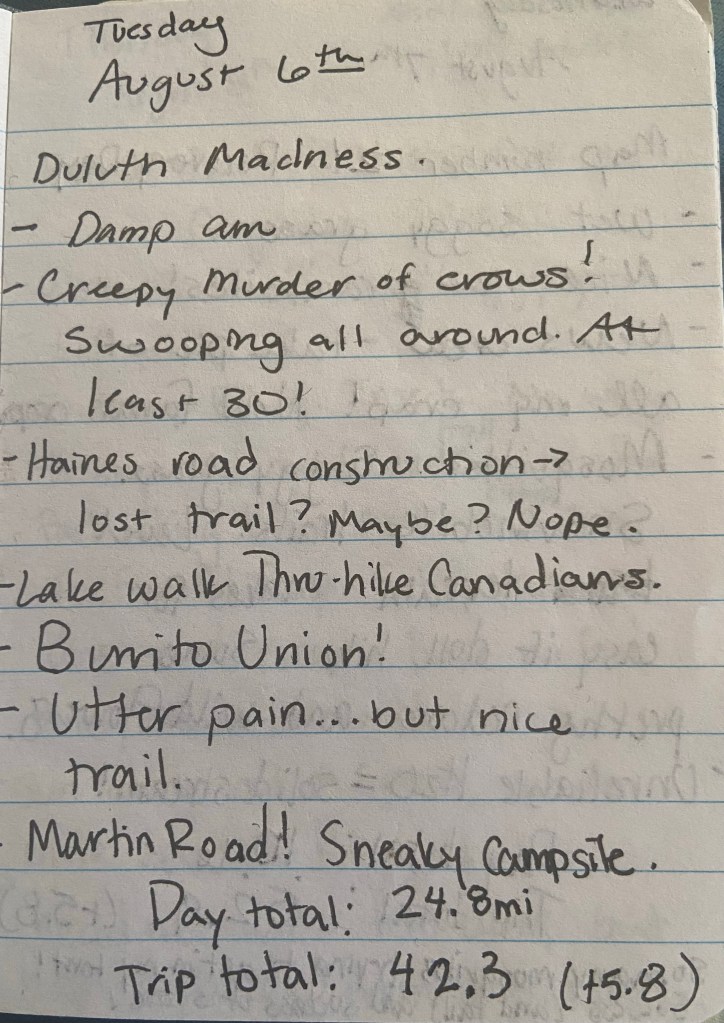 Tuesday
August 6th
Duluth Madness.
- Damp am
- Creepy Murder of crows!
Swooping all around. At
least 30!
- Haines road construction →
lost trail? Maybe? Nope.
- Lake walk Thru-hike Canadians.
- Burrito Union!
- Utter pain...but nice
trail.
- Martin Road! Sneaky Campsite.
Day total: 24.8mi
Trip total: 42.3 (+5.8)